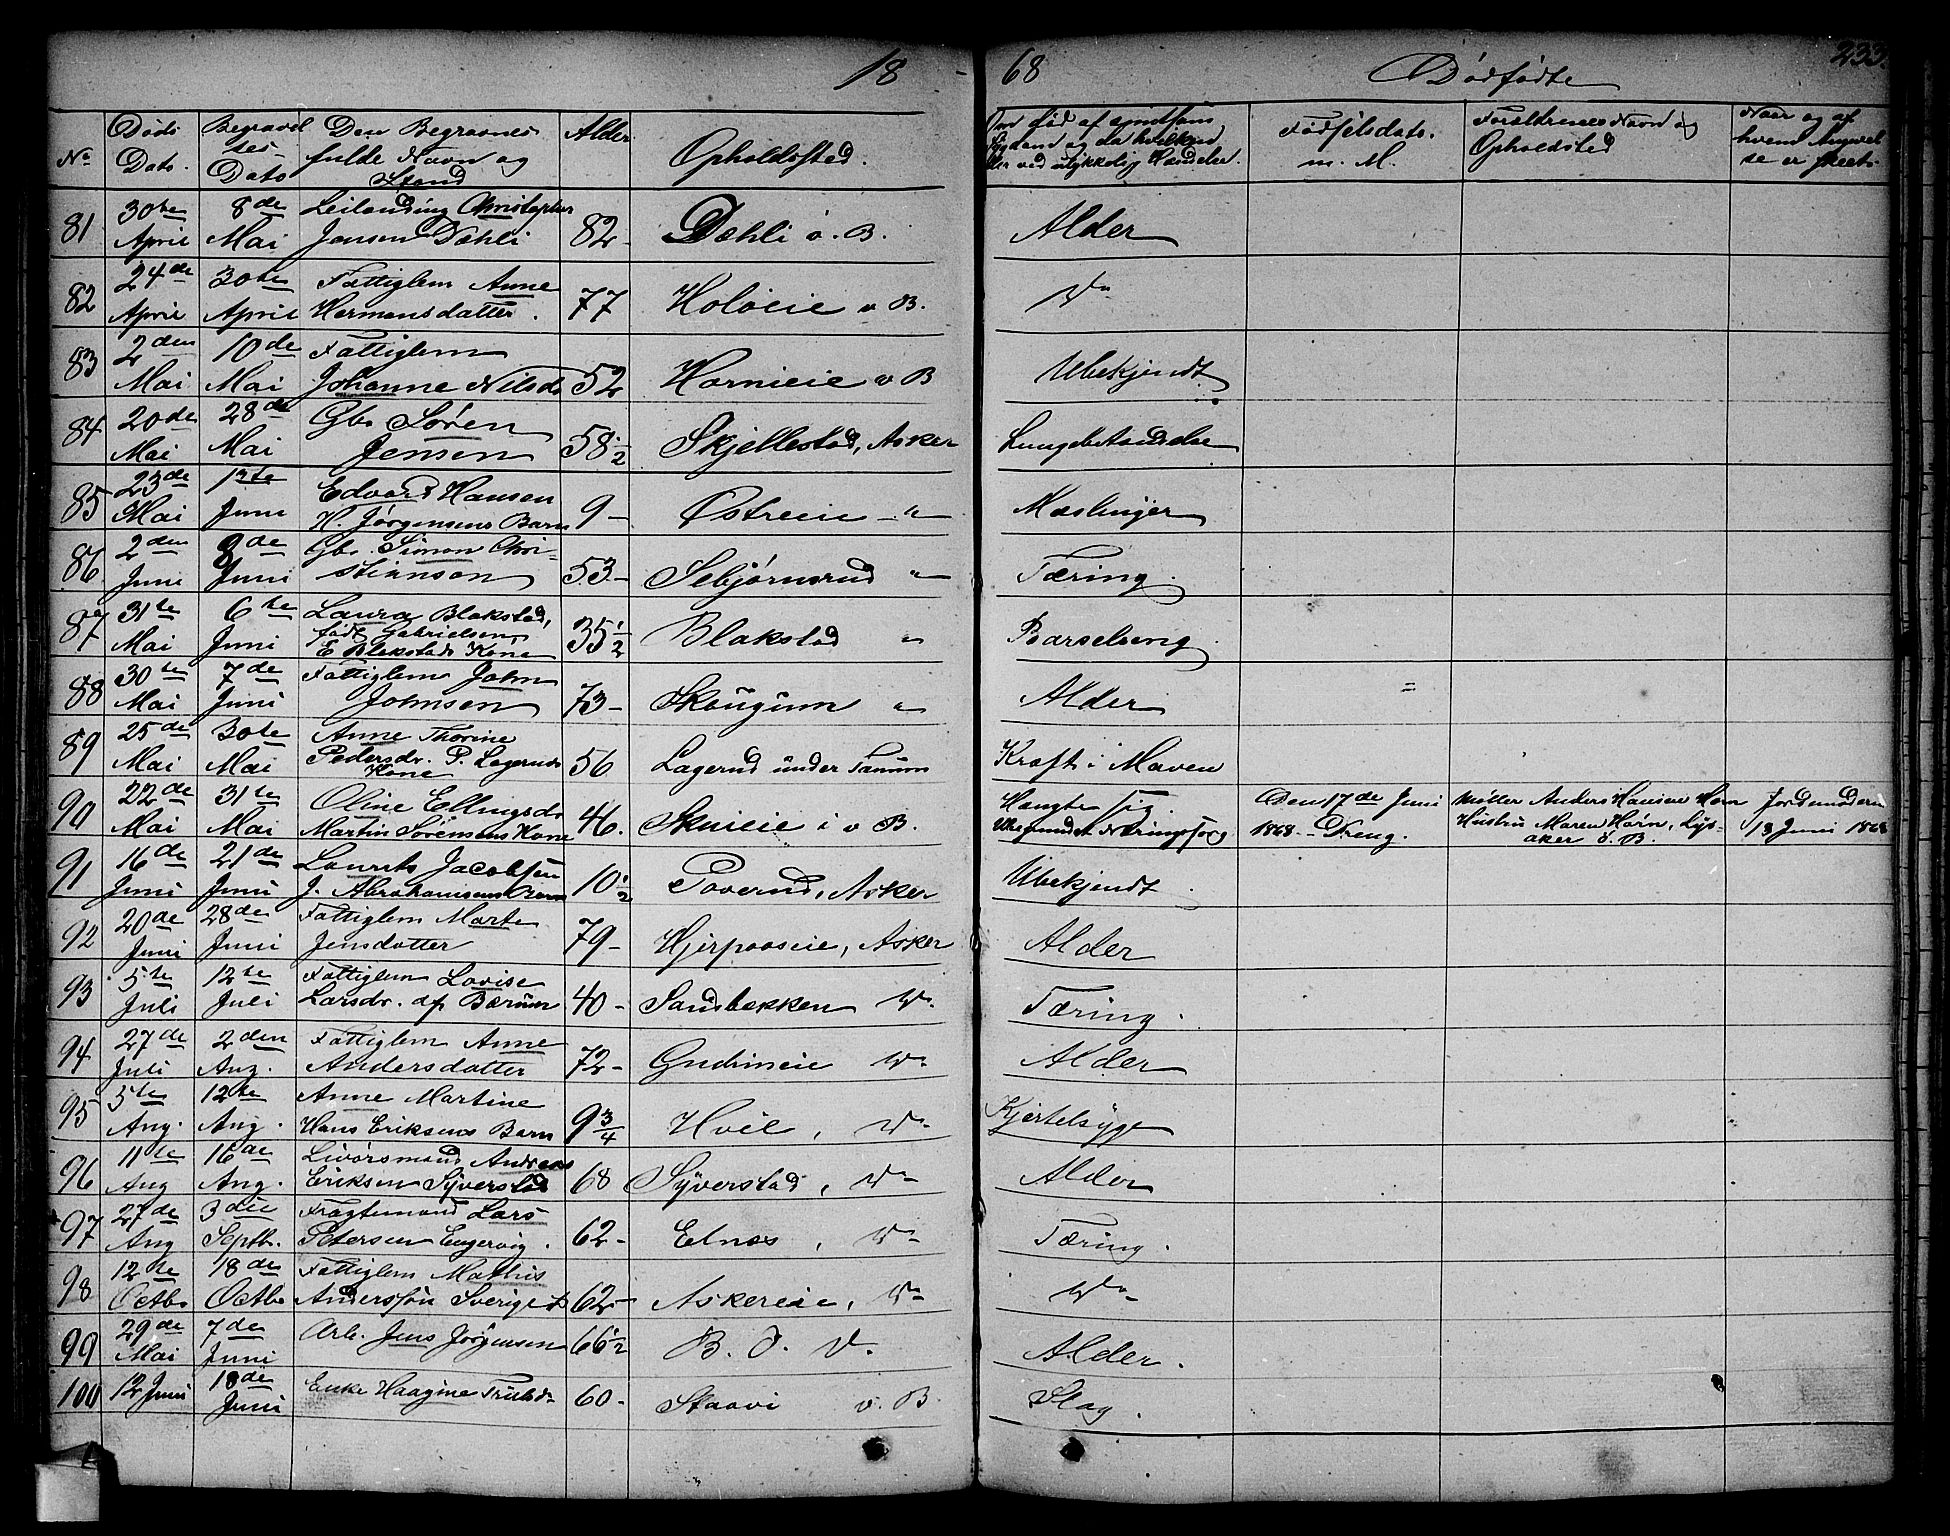 18 - 68 Dødfødte 233
No
Døds Dato.
Begravelses Dato
Den Begravnes fulde Navn og Stand
Alder
Opholdssted.
Om død af smitsom Sygdom og da hvilken eller ved ulykkelig Hændelse.
Fødselsdato. m. M.
Forældrenes Navn og Opholdssted
Naar og af hvem Anmeldelse er skeet
81 30te April 8de Mai Leilænding Christopher Jensen Dæhli 82 - Dæhli ø. B. Alder
82 24de April 30te April Fattiglem Anne Hermansdatter. 77 Holøeie v B. Do
83 2den Mai 10de Mai Fattiglem Johanne Nilsdr 52 Hornieie v B Ubekjendt
84 20de Mai 28de Mai Gbr Søren Jensen 58 1/2 Skjellestad, Asker Lungebetændelse
85 23de Mai 1ste Juni Edvard Hansen H. Jørgensens Barn 9 - Østreeie - " - Mæslinger
86. 2den Juni 8de Juni Gbr. Simon Christiansen 53. - Sebjørnsrud " - Tæring.
87 31te Mai 6te Juni Laura Blakstad, født Gabrielsen E Blakstads Kone 35 1/2 Blakstad " Barselseng.
88 30te Mai 7de Juni Fattiglem John Johnsen 73 - Skougum " Alder
89 25de Mai 30te Mai Anne Thorine Pedersdr. P. Lagerud Kone 56 Lagerud under Tanum Kræft i Maven
90 22de Mai 31te Mai Oline Ellingsdr Martin Sørensens Kone 46. Skuieie i v B. Hængte sig. Ubegrundet Næringssorg Den 17de Juni 1868 - Dreng. Møller Anders Hansen Horn Hustru Maren Horn, Lysaker ø. B. Jordmoderen 18 Juni 1868
91 16de Juni 21de Juni Laurits Jacobsen J. Abrahamsens Barn 10 1/2 Toverud, Asker Ubekjendt.
92 20de Juni 28de Juni Fattiglem Marte Jensdatter 79 - Hjerpaaseie, Asker Alder
93 5te Juli 12te Juli Fattiglem Lovise Larsdr. af Bærum 40 - Sandbækken Do. Tæring.
94 27de Juli 2den Aug. Fattiglem Anne Andersdatter 72 - Gudimeie Do Alder
95 5te Aug. 12te Aug. Anne Martine Hans Eriksens Barn 9 3/4 Hvil, Do Kjertelsyge
96 11te Aug 16de Aug. Livørsmand Andreas Eriksen Syverstad 68 Syverstad, Do Alder
97 27de Aug 3die Septb. Fragtemand Lars Petersen Engervig. 62 - Elnæs, Do Tæring.
98 12te Octbr 18de Octbr Fattiglem Mathis Anderssøn Sverige 62 - Askereie, Do Do
99 29de Mai 7de Juni Arb. Jens Jørgensen 66 1/2 B. O. Do. Alder.
100 12 Juni 18de Juni Enke Haagine Trulsdr 60 - Staavi v. B. Slag.